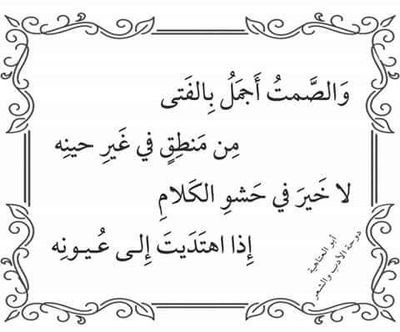 وَالصَّمتُ أَجمَلُ بِالفَتى
مِن مَنطِقٍ في غَيرِ حينِه
لا خَيرَ في حَشوِ الكَلامِ
إِذا اهتَدَيتَ إِلى عُيونِه
أبو العتاهية
دوحة الأدب والشعر